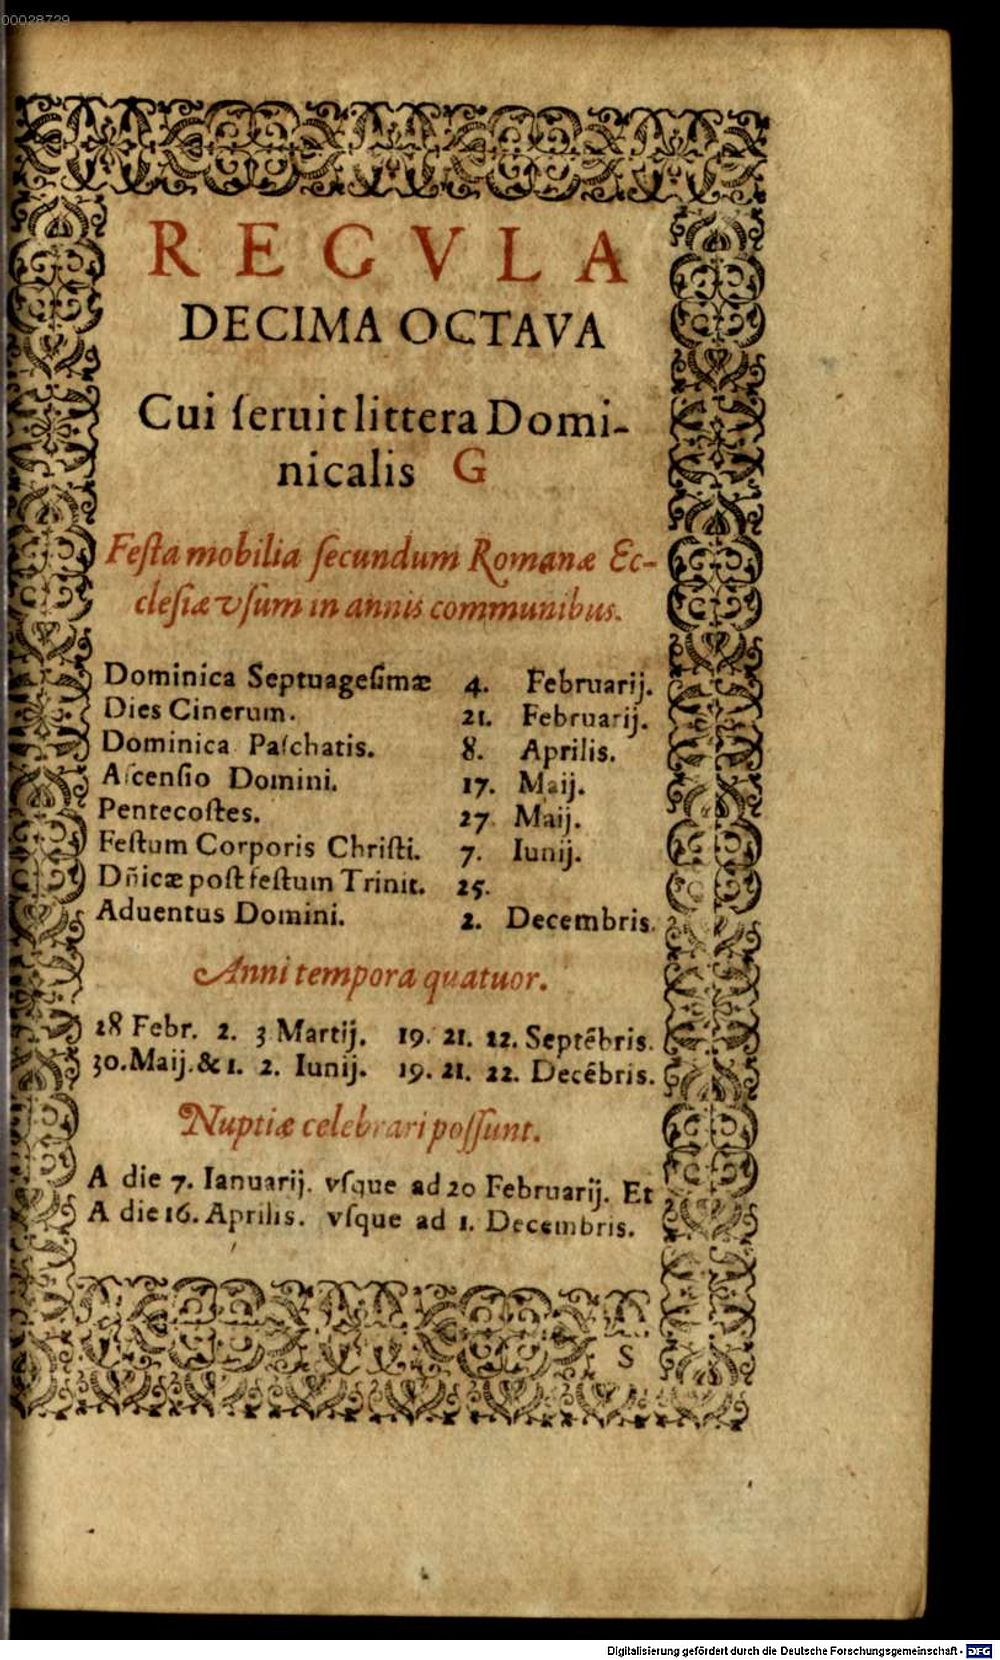 00028729
REGVLA
DECIMA OCTAVA
Cui ſeruit littera Domi-
nicalis G
Feſta mobilia ſecundum Romanæ Ec-
cleſiæ vſum in annis communibus.
Dominica Septuageſimæ 4. Februarij.
Dies Cinerum. 21. Februarij.
Dominica Paſchatis. 8. Aprilis.
Aſcenſio Domini. 17. Maij.
Pentecoſtes. 27 Maij.
Feſtum Corporis Chriſti. 7. Iunij.
Dñicæ poſt feſtum Trinit. 25.
Aduentus Domini. 2. Decembris.
Anni tempora quatuor.
28 Febr. 2. 3 Martij. 19. 21. 22. Septēbris.
30. Maij. & 1. 2. Iunij. 19. 21. 22. Decēbris.
Nuptiæ celebrari poſſunt.
A die 7. Ianuarij. vſque ad 20 Februarij. Et
A die 16. Aprilis. vſque ad 1. Decembris.
S
Digitalisierung gefördert durch die Deutsche Forschungsgemeinschaft - DFG